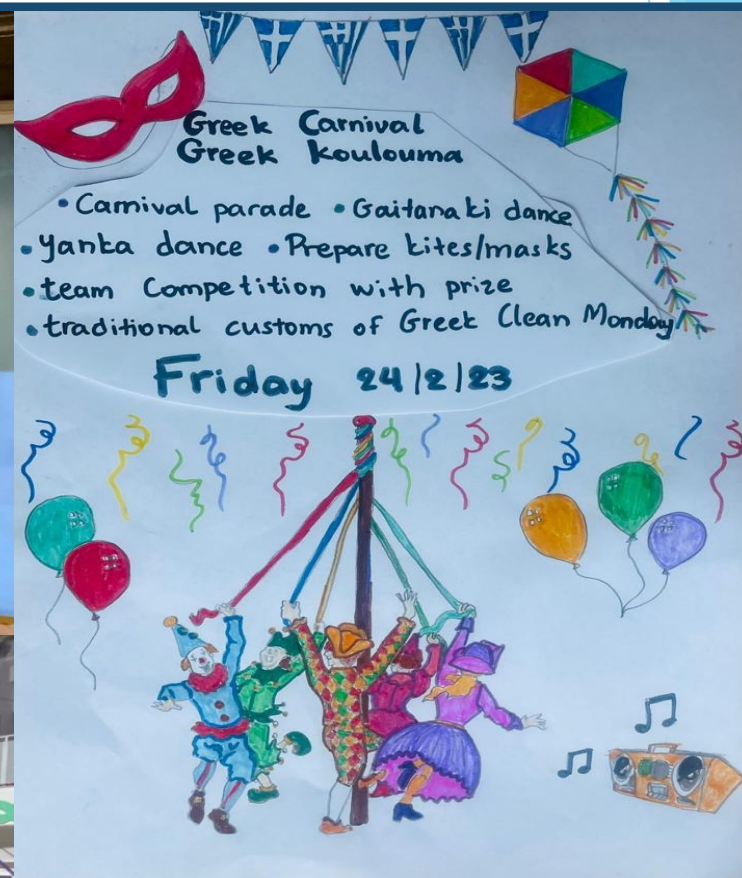 Greek Carnival
Greek Koulouma
• Carnival parade • Gaitanaki dance
• Yanka dance • Prepare kites/masks
• team Competition with prize
• traditional customs of Greek Clean Monday
Friday 24/2/23